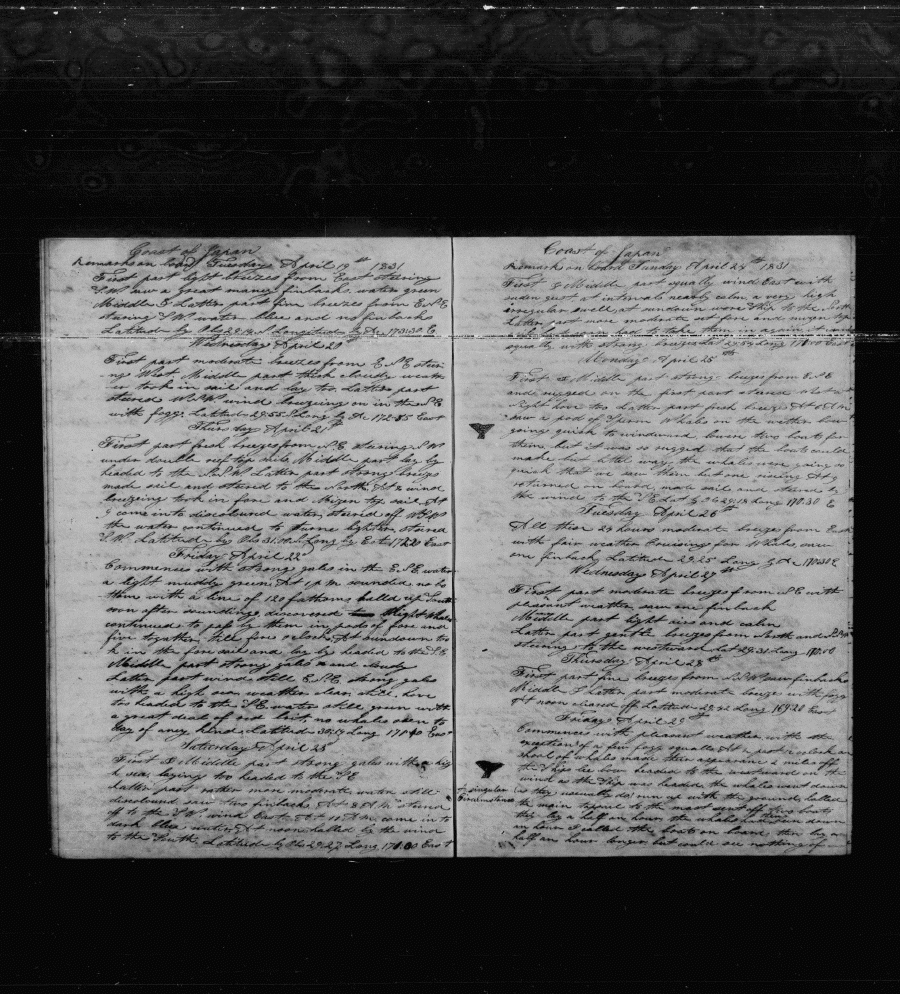 Coast of Japan
Remarks on board Tuesday April 19th 1831
First part light breezes from East steering
S.W. saw a great many finbacks water green
Middle & Latter part fine breezes from E.S.E
stering S.W. water blue and no finbacks
Latitude by Obs Longitude by
Wednesday April 20th
First part moderate breezes from E.S.E steri
ng West Middle part thick cloudy weath
er took in sail and lay too Latter part
steered W.S.W. wind breezing on in the S.E
with foggy Latitude 29.55 Long by 172.35 East
Thursday April 21st
First part fresh breezes from S.E. stering S.W.
under double reef top sails Middle part lay by
headed to the S.S.W. Latter part strong breezes
made sail and stered to the North At wind
breezing took in fore and Mizen top sail At
9 come into discoloured water stered off W.S.W
the water continued to turne lighter stered
S.W. Latitude by Obs 31. Long by 172.20 East
Friday April 22
Commences with strong gales in the E.S.E. water
a light muddy green At 1 p.m. sounded no bo
tom with a line of 120 fathoms hailed up South
soon after sounding discovered Right Whales
continued to pass by them in pods of four and
five together till five o clock At sundown too
k in the fore sail and lay by headed to the S.E
Middle part strong gales and cloudy
Latter part wind still E.S.E. strong gales
with a high sea weather clear still here
too headed to the S.E. water still green with
a great deal of but no whales seen to
day of any kind Latitude 30.19 Long East
Saturday April 23
First & Middle part strong gales with a hig
h sea laying too headed to the S.E
Latter part rather more moderate water still
discoloured saw two finbacks At 8 A.M. stered
off to the S.W. wind East At 11 A.M. come in to
dark blue water At noon hailed by the wind
to the South Latitude by Obs 29.27 Long East
Coast of Japan
Remarks on board Sunday April 24th 1831
First & Middle part squally wind East with
suden gust at intervals nearly calm a very high
irregular swell at sundown wore Ship to the
Latter part more moderate set fore and mizen top
had to take them in again it
squally with strong breezes Lat Long East
Monday April 25th
First & Middle part strong breezes from E.S.E
and rugged on the first part stered
night hove too Latter part fresh breeze At
saw a pod of Sperm Whales on the wether bow
going quick to windward lower two boats for
them but it was so rugged that the boats could
made but little way the whales were going so
quick that we saw them but one rising At 9
returned on board made sail and stered by
the wind to the S.E Lat by 29.18 Long 170.30 E
Tuesday April 26th
All thier 24 hours moderate breezes from East
with fair weather Cruising for Whales saw
one finback Latitude 29.25 Long
Wednesday April 27th
First part moderate breezes from S.E with
pleasant weather saw one finback
Middle part light airs and calm
Latter part gentle breezes from South and
stering to the westward Lat 29.31 Long 170.00
Thursday April 28th
First part fine breeze from S.S.W saw finbacks
Middle & Latter part moderate breeze with foggy
At noon cleared off Latitude 29.32 Long 169.20 East
Friday April 29th
Commences with pleasant weather with the
exception of a few foggy squalls At past 2 o clock a
shoal of whales made thier appearance 2 miles off
the Ships lee bow headed to the westward on the
wind as the Ship was headed the whales went down
A singular
Circumstance
(as they usually do) run up with the ground hailed
the main topsail to the mast sent off two boats
this by a half an hour the whales down
an hour I called the boats on board then lay an
half an hour longer but could see nothing of